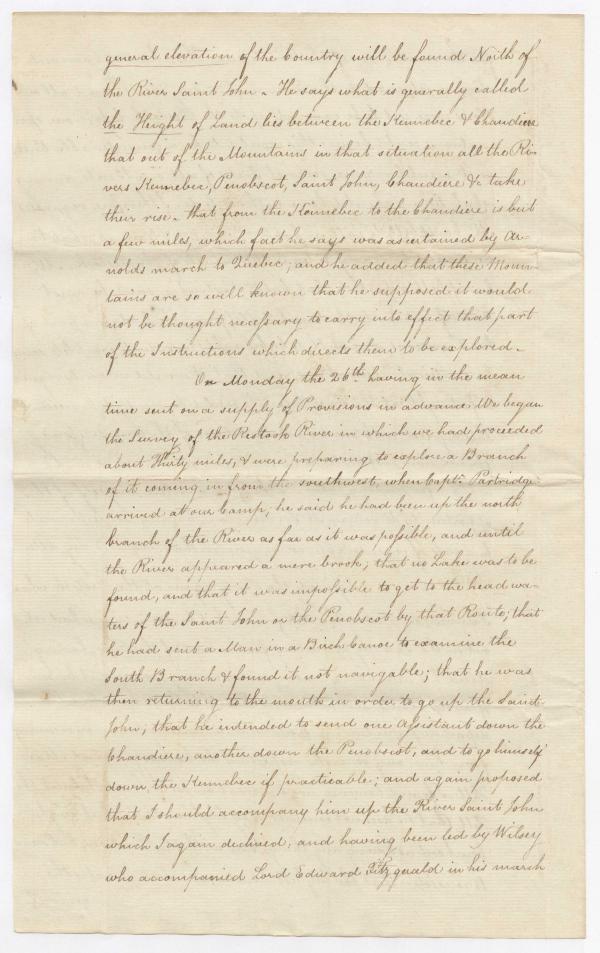 general elevation of the Country will be found North of
the River Saint John - He says what is generally called
the Height of Land lies between the Kennebec & Chaudiere
that out of the Mountains in that situation all the Ri-
vers Kennebec, Penobscot, Saint John, Chaudiere &c take
their rise - that from the Kennebec to the Chaudiere is but
a few miles, which fact he says was ascertained by Ar-
nolds march to Quebec; and he added that these Moun-
tains are so well known that he supposed it would
not be thought necessary to carry into effect that part
of the Instructions which directs them to be explored -
On Monday the 26th having in the mean
time sent on a supply of Provisions in advance We began
the Survey of the Restook River in which we had proceeded
about Thirty miles, & were preparing to explore a Branch
of it coming in from the southwest, when Captn. Partridge
arrived at our Camp; he said he had been up the north
branch of the River as far as it was possible, and until
the River appeared a mere brook, that no Lake was to be
found, and that it was impossible to get to the head wa-
ters of the Saint John or the Penobscot by that Route; that
he had sent a Man in a Birch Canoe to examine the
South Branch & found it not navigable; that he was
then returning to the mouth in order to go up the Saint
John; that he intended to send one Assistant down the
Chaudiere, another down the Penobscot, and to go himself
down the Kennebec if practicable; and again proposed
that I should accompany him up the River Saint John
which I again declined; and having been led by Wilsey
who accompanied Lord Edward Fitzgerald in his march